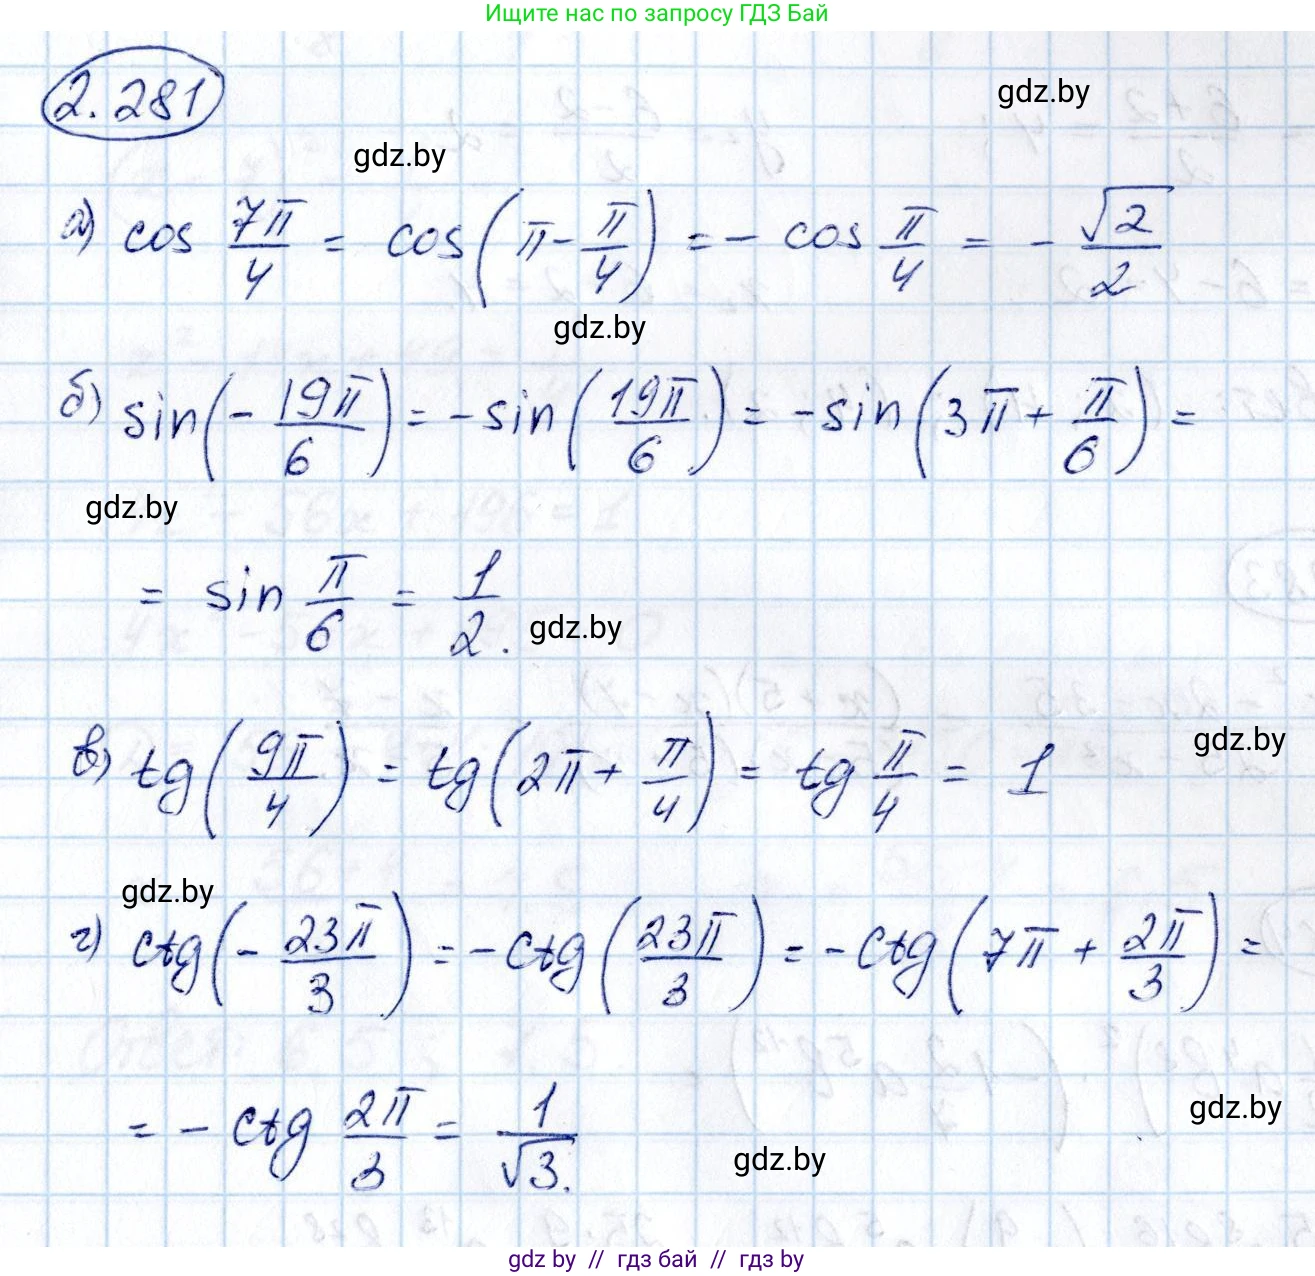 Ищите нас по запросу ГДЗ Бай
2.281
gdz.by
gdz.by
а) cos 7π/4 = cos(π - π/4) = - cos π/4 = - √2/2
gdz.by
б) sin(- 19π/6) = - sin(19π/6) = - sin(3π + π/6) =
gdz.by
= sin π/6 = 1/2.
gdz.by
в) tg(9π/4) = tg(2π + π/4) = tg π/4 = 1
gdz.by
gdz.by
г) ctg(- 23π/3) = - ctg(23π/3) = - ctg(7π + 2π/3) =
= - ctg 2π/3 = 1/√3.
gdz.by
gdz.by
gdz.by // гдз бай // гдз by